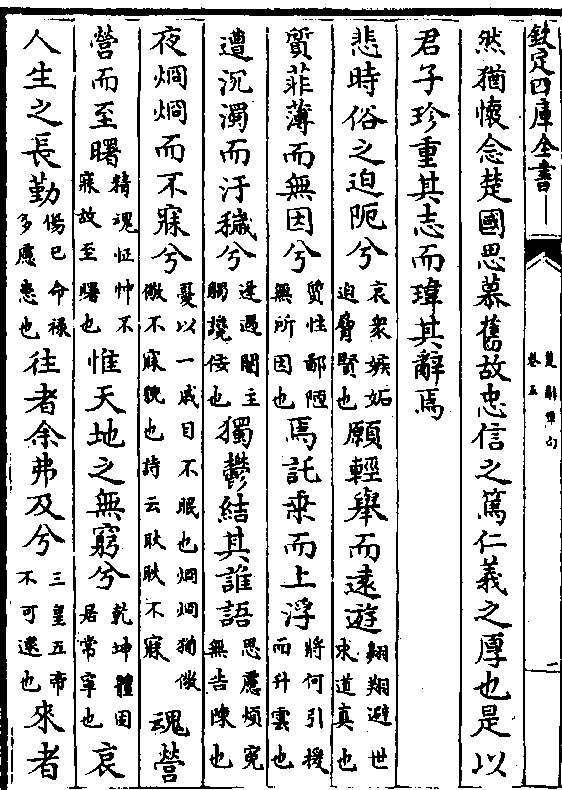 欽定四庫全書
楚辭章句
卷五
然猶懷念楚國思慕舊故忠信之篤仁義之厚也是以
君子珍重其志而瑋其辭焉
悲時俗之迫阨兮哀衆嫉妬迫脅賢也願輕舉而遠遊翺翔避世求道真也
質菲薄而無因兮質性鄙陋無所因也焉託乘而上浮將何引援而升雲也
遭沉濁而汙穢兮逢遇闇主觸讒佞也獨鬱結其誰語思慮煩寃無告陳也
夜烱烱而不寐兮憂以一戚目不眠也烱烱猶儆儆不寐貌也詩云耿耿不寐魂營
營而至曙精魂怔忡不寐故至曙也惟天地之無窮兮乾坤體固居常寧也哀
人生之長勤傷已命祿多慮患也往者余弗及兮三皇五帝不可逮也來者